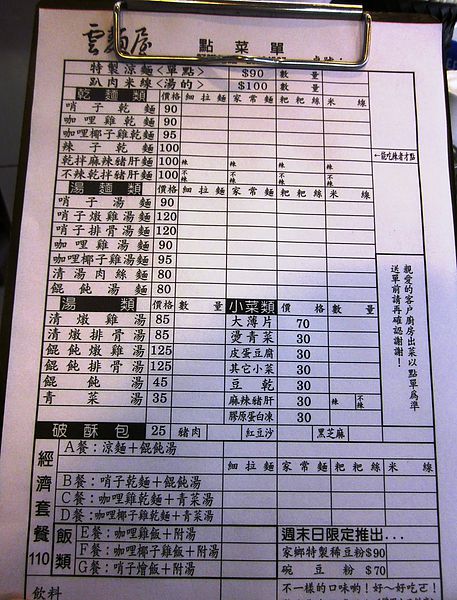 雲麵屋 點菜單
特製涼麵<單點> $90 數量
趴肉米線<湯的> $100 數量
乾麵類 價格 細拉麵 家常麵 粑粑絲 米線
哨子乾麵 90
咖哩雞乾麵 90
咖哩椰子雞乾麵 95
辣子乾麵 100 ←能吃辣者才點
乾拌麻辣豬肝麵 100 辣 辣 辣 辣
不辣乾拌豬肝麵 100 不辣 不辣 不辣 不辣
湯麵類 價格 細拉麵 家常麵 粑粑絲 米線
哨子湯麵 90
哨子燉雞湯麵 120
哨子排骨湯麵 120
咖哩雞湯麵 90
咖哩椰子雞湯麵 95
清湯肉絲麵 80
餛飩湯麵 80
親愛的客戶廚房出菜以點單為準
送單前請再確認謝謝!
湯類 價格 數量 小菜類 價格 數量
清燉雞湯 85 大薄片 70
清燉排骨湯 85 燙青菜 30
餛飩燉雞湯 125 皮蛋豆腐 30
餛飩排骨湯 125 其它小菜 30
餛飩湯 45 豆乾 30
青菜湯 35 麻辣豬肝 30 辣 不辣
膠原蛋白凍 30
破酥包 25 豬肉 紅豆沙 黑芝麻
經濟套餐 110
A餐:涼麵+餛飩湯
細拉麵 家常麵 粑粑絲 米線
B餐:哨子乾麵+餛飩湯
C餐:咖哩雞乾麵+青菜湯
D餐:咖哩椰子雞乾麵+青菜湯
飯類 E餐:咖哩雞飯+附湯 週末日限定推出...
F餐:咖哩椰子雞飯+附湯 家鄉特製稀豆粉$90
G餐:哨子燴飯+附湯 碗豆粉 $70
飲料 不一樣的口味喲!好~好吃ㄛ!